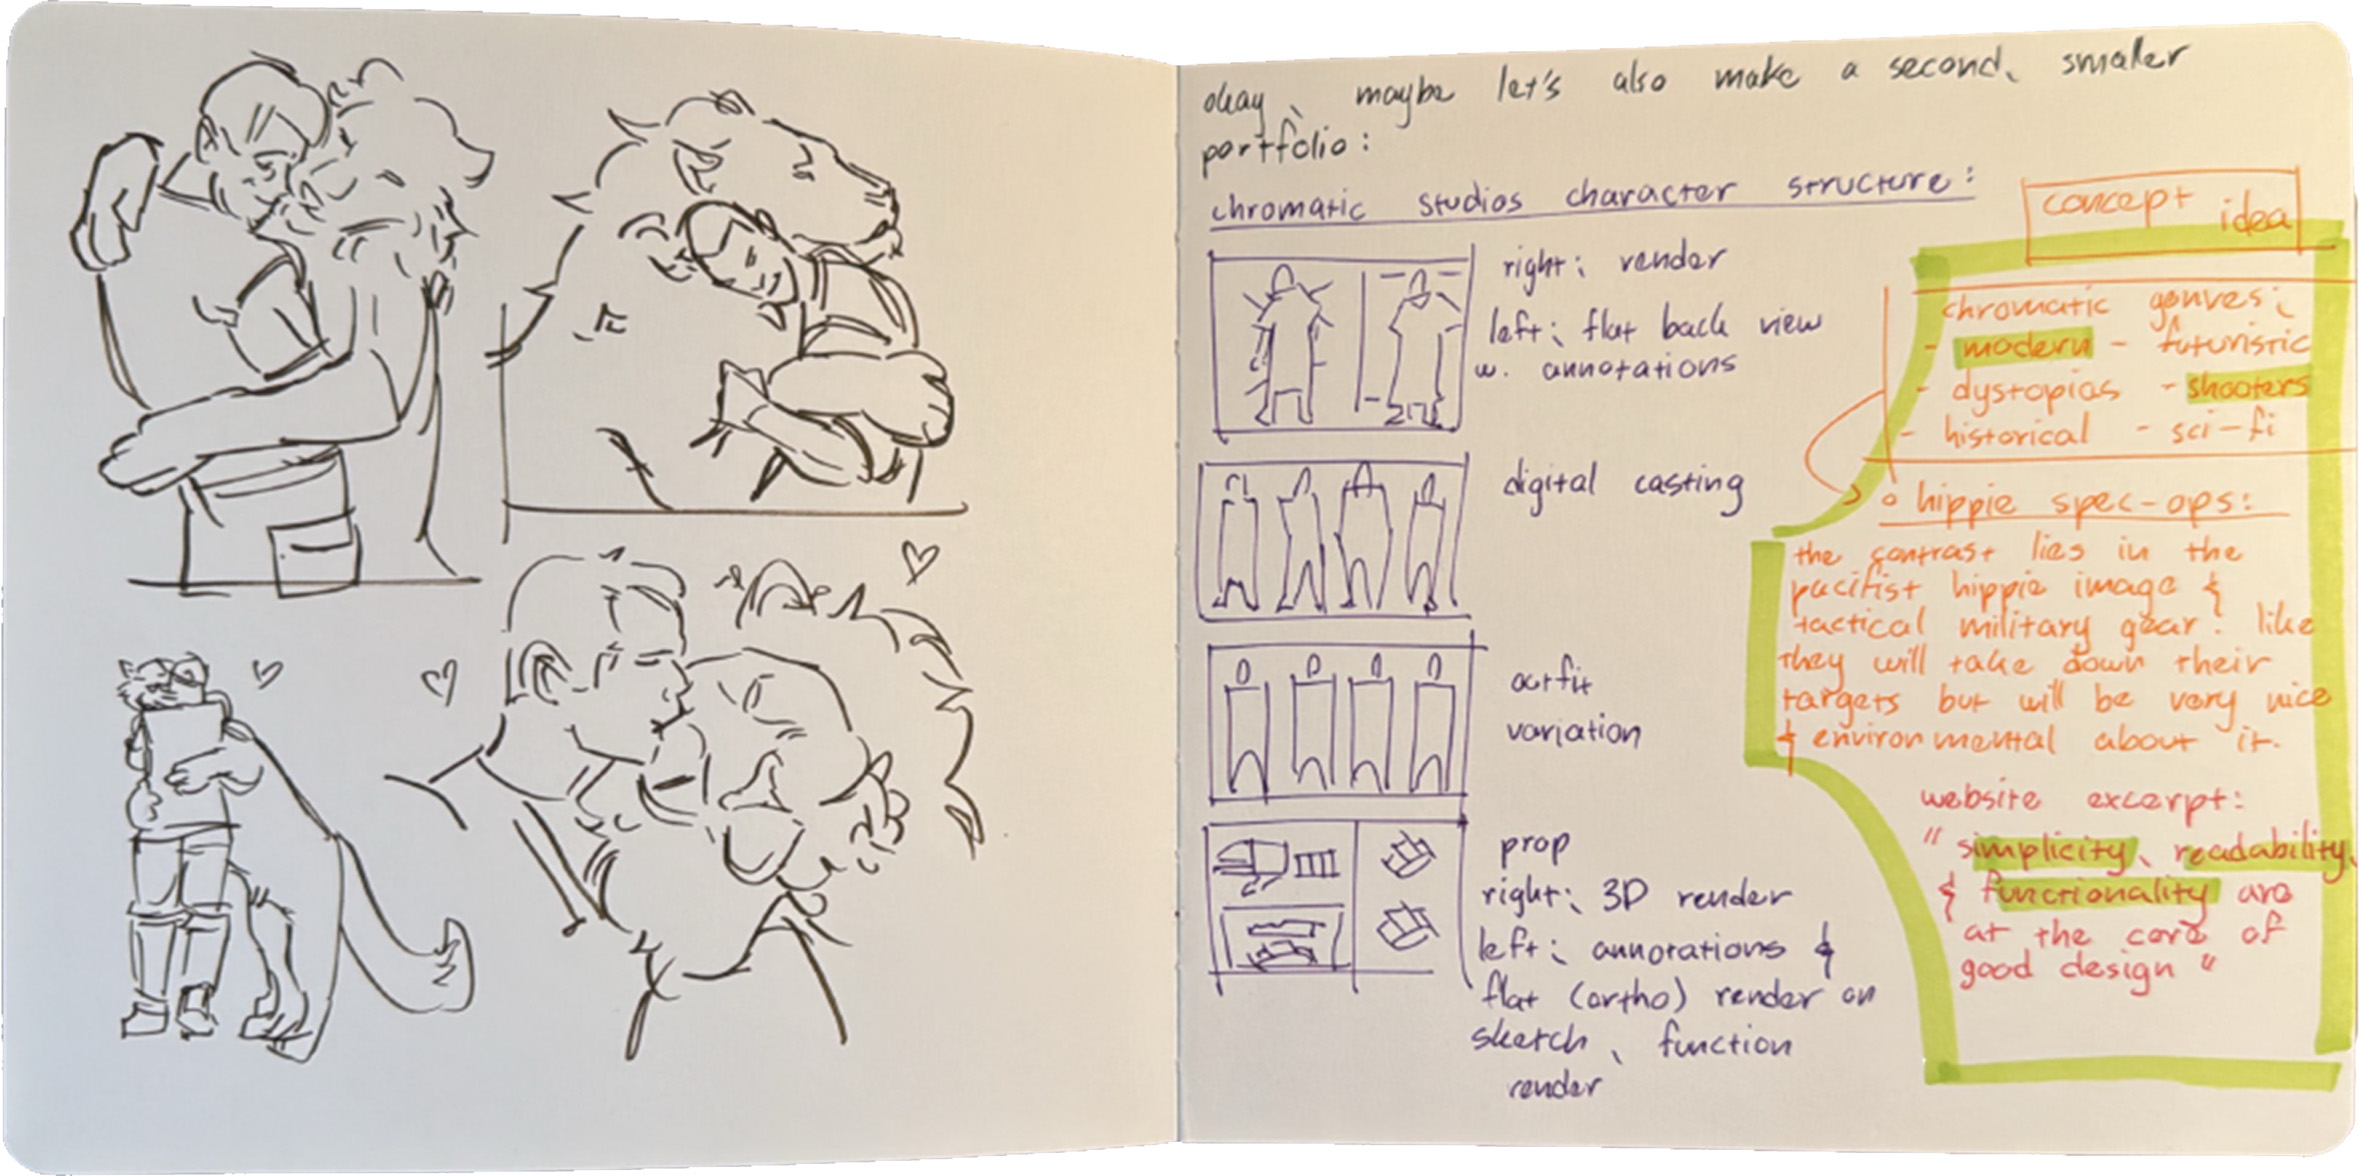 okay, maybe let's also make a second, smaller
portfolio:
chromatic studios character structure:
right: render
left: flat back view
w. annotations
digital casting
outfit
variation
prop
right: 3D render
left: annotations &
flat (ortho) render on
sketch, function
render
concept
idea
chromatic genres:
- modern - futuristic
- dystopias - shooters
- historical - sci-fi
hippie spec-ops:
the contrast lies in the
pacifist hippie image &
tactical military gear. like
they will take down their
targets but will be very nice
& environmental about it.
website excerpt:
"simplicity, readability,
& functionality are
at the core of
good design"